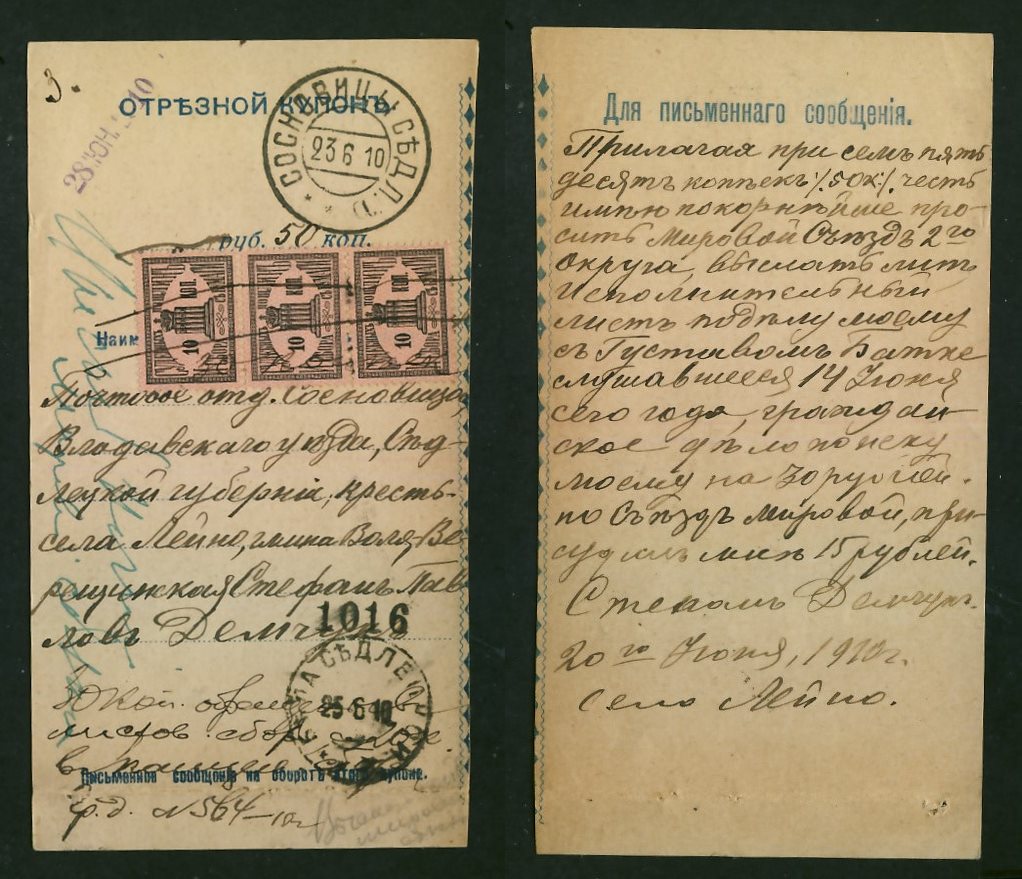 3.
28 ЮН. 1910
ОТРѢЗНОЙ КУПОНЪ
СОСНОВИЦЫ СѢДЛ.
23 6 10
руб. 50 коп.
10 КОП. 10 КОП. 10 КОП.
Наим
Почтовое отд. Сосновица,
Владавскаго уѣзда, Сѣд-
лецкой губерніи, кресть.
села Лейно, гмина Воля-Ве-
рещинская Стефанъ Пав-
ловъ Демчукъ
1016
СѢДЛЕЦ
25 6 10
листов. сбор
в
Письменное сообщеніе на оборотѣ этого купона.
гр. д. № 564—10 г
Для письменнаго сообщенія.
Прилагая при семъ пять
десятъ копѣекъ /.50 к./. честь
имѣю покорнѣйше про-
сить Мировой Съѣздъ 2го
округа, выслать мнѣ
Исполнительный
листъ по дѣлу моему
съ Густавомъ Батке
слушавшееся 14 Іюня
сего года, граждан
ское дѣло по иску
моему на 30 рублей.
но Съѣздъ Мировой, при-
судилъ мнѣ 15 рублей.
Степанъ Демчукъ.
20 го Іюня, 1910 г.
село Лейно.